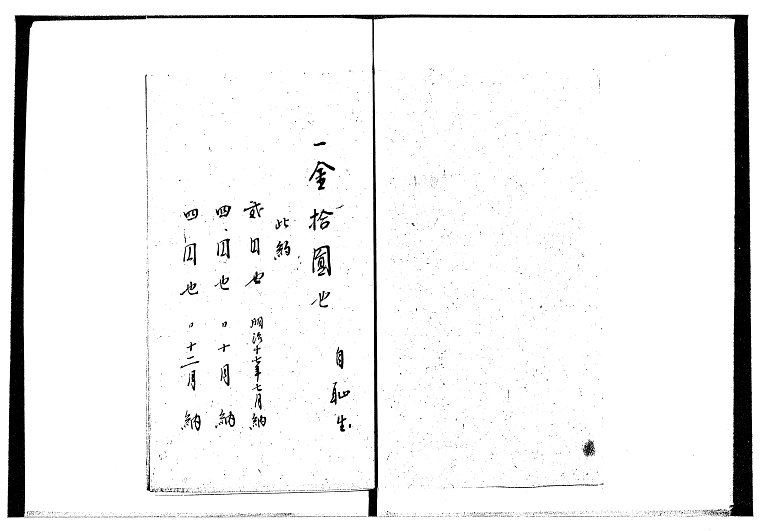 一金拾圓也
自恥生
此納
貮円也 明治十七年七月納
四円也 〃十月納
四円也 〃十二月納